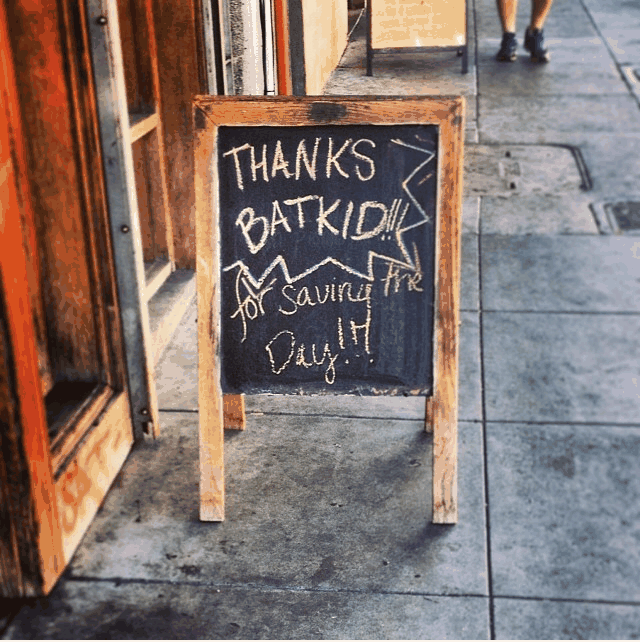 THANKS
BATKID!!!
for saving the
Day!!!